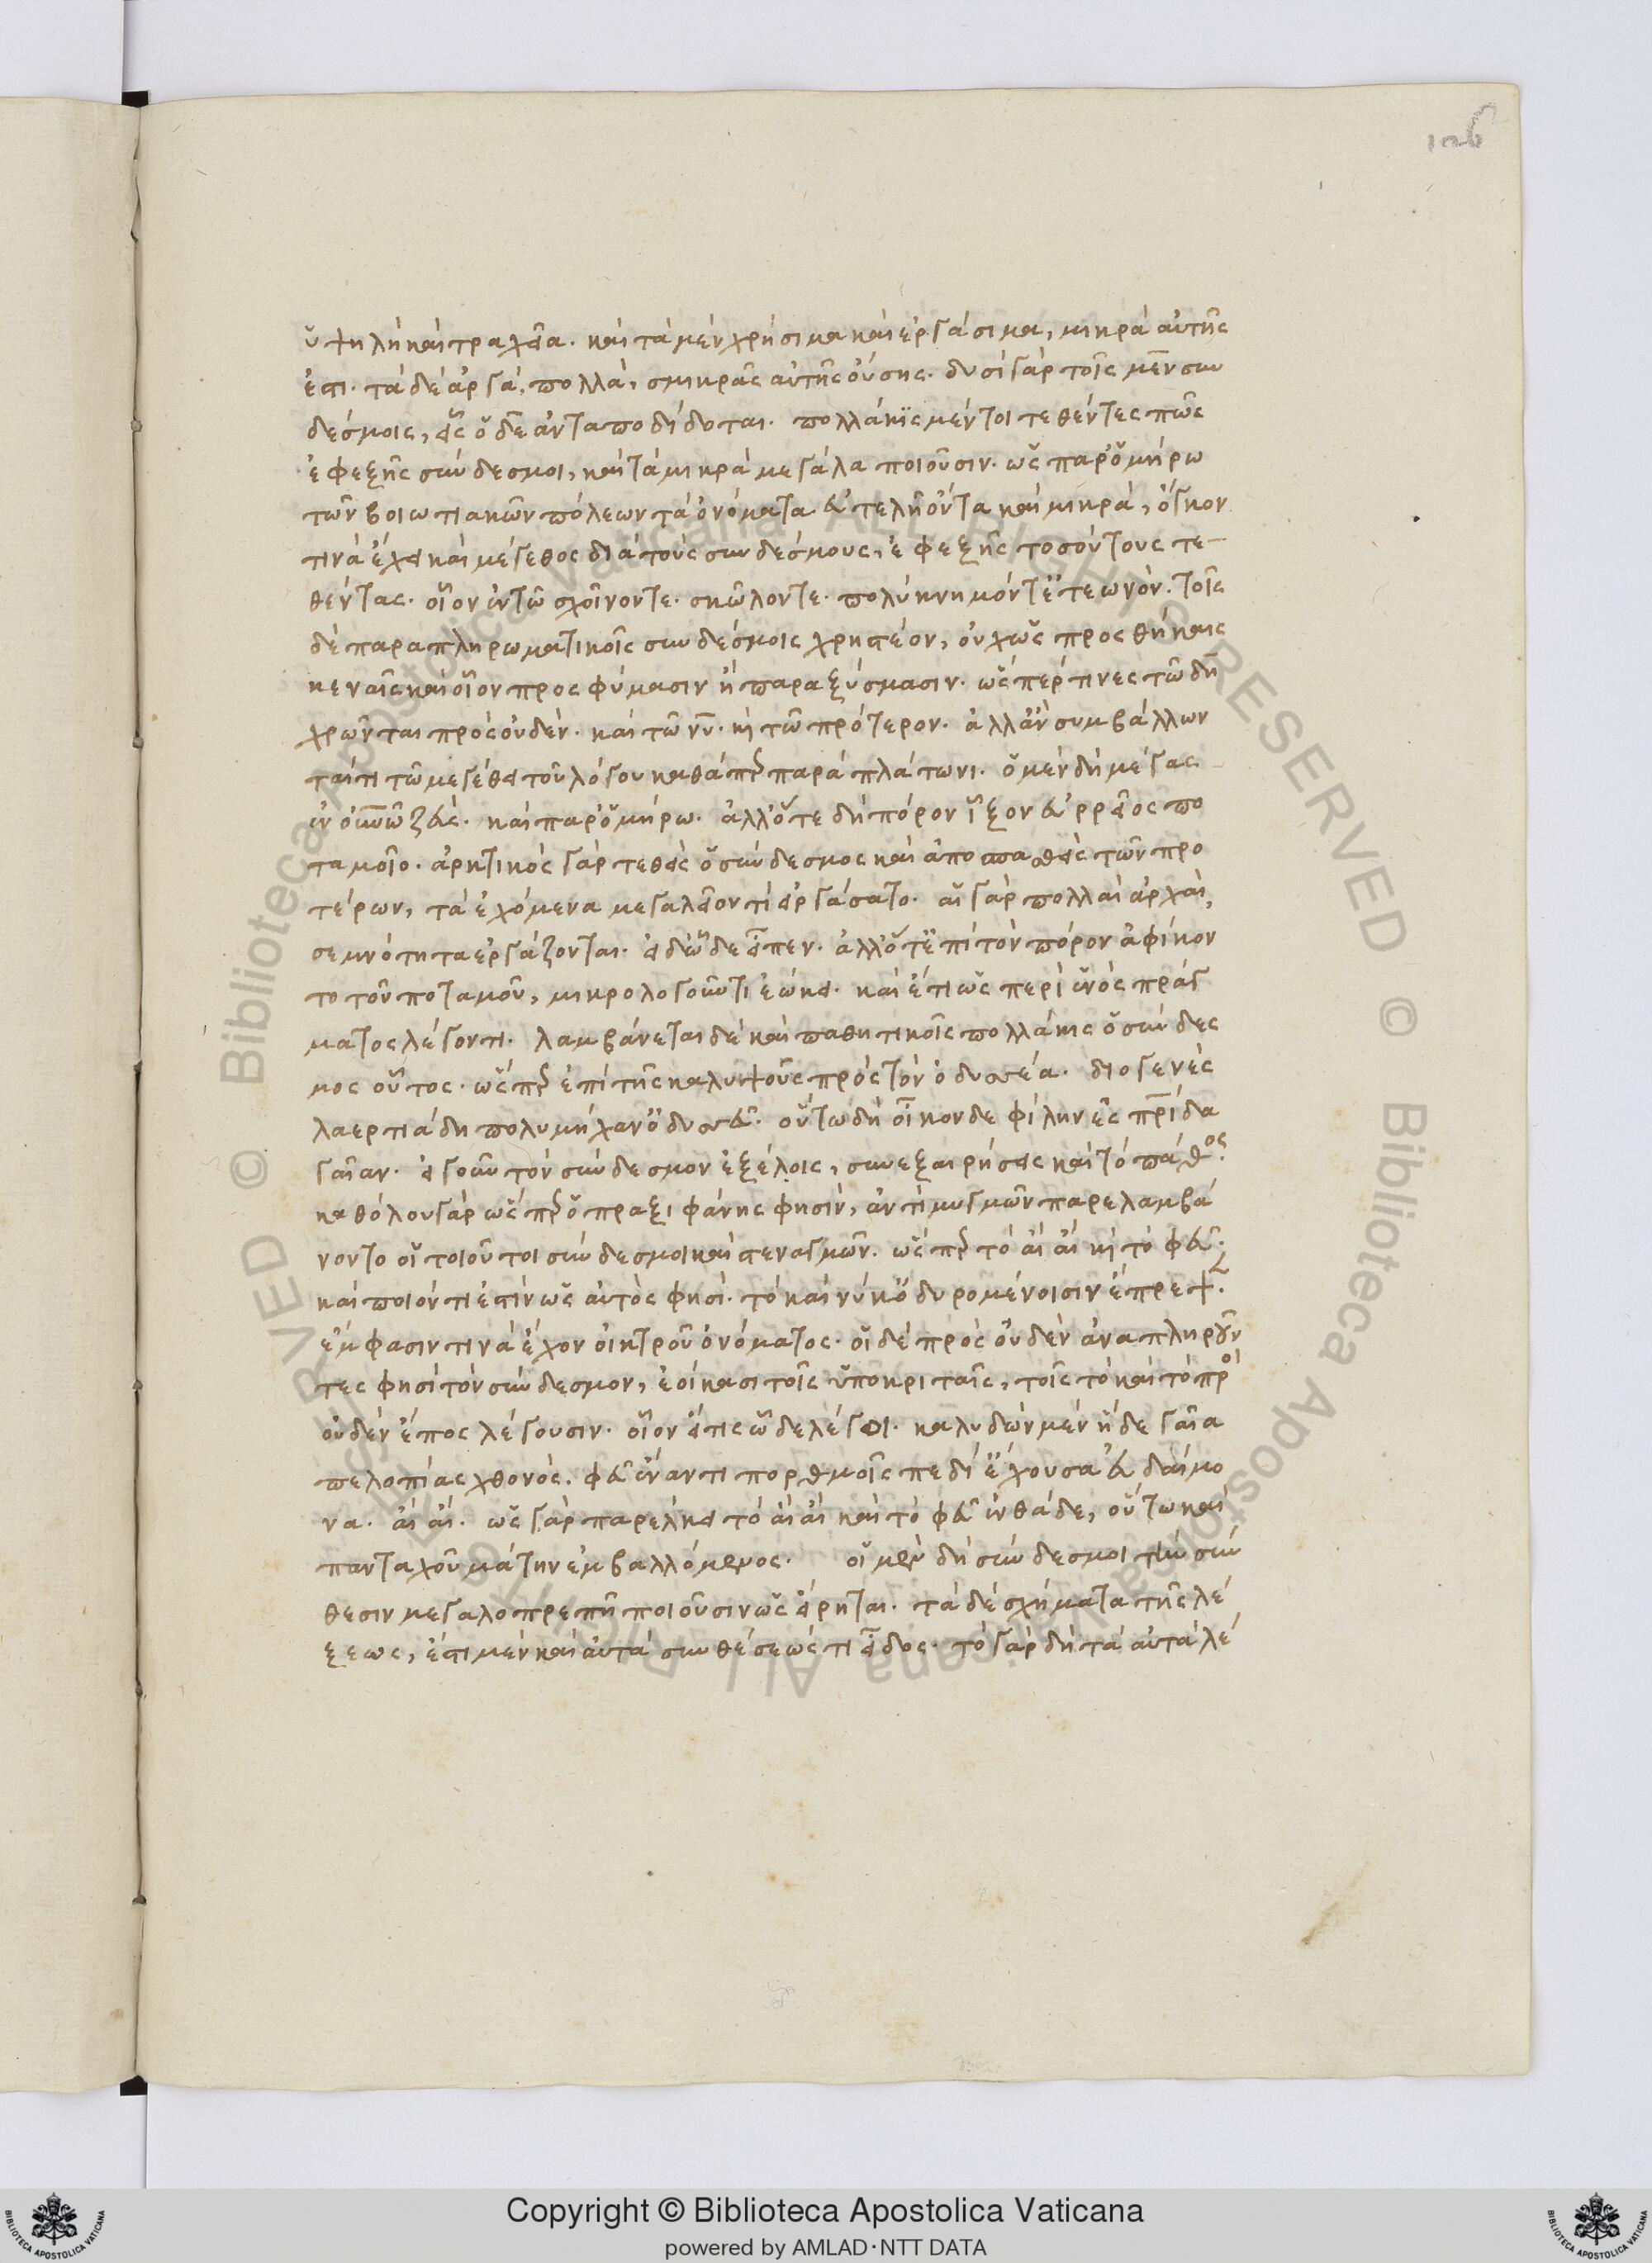 106
ὑψηλὴ καὶ τραχεῖα. καὶ τὰ μὲν χρήσιμα καὶ ἐργάσιμα, μικρὰ αὐτῆς
ἐστι. τὰ δὲ ἀργά, πολλά, σμικρᾶς αὐτῆς οὔσης. δυσὶ γὰρ τοῖς μὲν συν
δέσμοις, εἷς ὁ δὲ ἀνταποδίδοται. πολλάκις μέντοι τεθέντες πῶς
ἐφεξῆς σύνδεσμοι, καὶ τὰ μικρὰ μεγάλα ποιοῦσιν. ὡς παρ' ὁμήρω
τῶν βοιωτιακῶν πόλεων τὰ ὀνόματα εὐτελῆ ὄντα καὶ μικρά, ὄγκον
τινὰ ἔχει καὶ μέγεθος διὰ τοὺς συνδέσμους, ἐφεξῆς τοσούτους τε-
θέντας. οἷον ἐν τῶ σχοῖνον τε. σκῶλον τε. πολύκνημόν τ' ἐτεωνόν. τοῖς
δὲ παραπληρωματικοῖς συνδέσμοις χρηστέον, οὐχ ὡς προσθήκαις
κεναῖς καὶ οἷον προσφύμασιν ἢ παραξύσμασιν. ὥσπέρ τινες τῶ δὴ
χρῶνται πρὸς οὐδέν. καὶ τῶ νῦν. κὶ τῶ πρότερον. ἀλλ' ἂν συμβάλλων
ταί τι τῶ μεγέθει τοῦ λόγου καθάπερ παρὰ πλάτωνι. ὁ μὲν δὴ μέγας
ἐν οὐρανῶ ζεύς. καὶ παρ' ὁμήρω. ἀλλ' ὅτε δὴ πόρον ἷξον εὐρρεῖος πο
ταμοῖο. ἀρκτικὸς γὰρ τεθεὶς ὁ σύνδεσμος καὶ ἀποσπασθεὶς τῶν προ
τέρων, τὰ ἐχόμενα μεγαλεῖον τί εἰργάσατο. αἱ γὰρ πολλαὶ ἀρχαί,
σεμνότητα ἐργάζονται. εἰ δ' ὧδε εἶπεν. ἀλλ' ὅτ' ἐπὶ τὸν πόρον ἀφίκον
το τοῦ ποταμοῦ, μικρολογοῦντι ἐώκει. καὶ ἔτι ὡς περὶ ἑνὸς πράγ
ματος λέγοντι. λαμβάνεται δὲ καὶ παθητικοῖς πολλάκις ὁ σύνδεσ
μος οὗτος. ὥσπερ ἐπὶ τῆς καλυψοῦς πρὸς τὸν ὀδυσσέα. διογενὲς
λαερτιάδη πολυμήχαν' ὀδυσσεῦ. οὕτω δὴ οἶκον δε φίλην ἐς πρίδα
γαῖαν. εἰ γοῦν τὸν σύνδεσμον ἐξέλοις, συνεξαιρήσεις καὶ τὸ πάθος.
καθόλου γὰρ ὥσπερ ὁ πραξιφάνης φησίν, ἀντὶ μυγμῶν παρελαμβά
νοντο οἱ τοιοῦτοι σύνδεσμοι καὶ στεναγμῶν. ὥσπερ τὸ αἲ αἲ κὶ τὸ φεῦ.
καὶ ποιόν τι ἐστὶν ὡς αὐτός φησι. τὸ καί νύ κ' ὀδυρομένοισιν ἔπρεψ.
ἔμφασιν τινὰ ἔχον οἰκτροῦ ὀνόματος. οἱ δὲ πρὸς οὐδὲν ἀναπληροῦν
τες φησὶ τὸν σύνδεσμον, ἐοίκασι τοῖς ὑποκριταῖς, τοῖς τὸ καὶ τὸ πρὸ
οὐδὲν ἔπος λέγουσιν. οἷον εἴ τις ὧδε λέγοι. καλυδὼν μὲν ἥδε γαῖα
πελοπίας χθονός. φεῦ ἐν ἀντιπόρθμοις πεδί' ἔχουσα εὐδαίμο
να. αἲ αἲ. ὡς γὰρ παρέλκει τὸ αἲ αἲ καὶ τὸ φεῦ ἐνθάδε, οὕτω καὶ
πανταχοῦ μάτην ἐμβαλλόμενος. οἱ μὲν δὴ σύνδεσμοι τὴν σύν
θεσιν μεγαλοπρεπῆ ποιοῦσιν ὡς εἴρηται. τὰ δὲ σχήματα τῆς λέ
ξεως, ἐστι μὲν καὶ αὐτὰ συνθέσεώς τι εἶδος. τὸ γὰρ δὴ τὰ αὐτὰ λέ
Copyright © Biblioteca Apostolica Vaticana
powered by AMLAD·NTT DATA